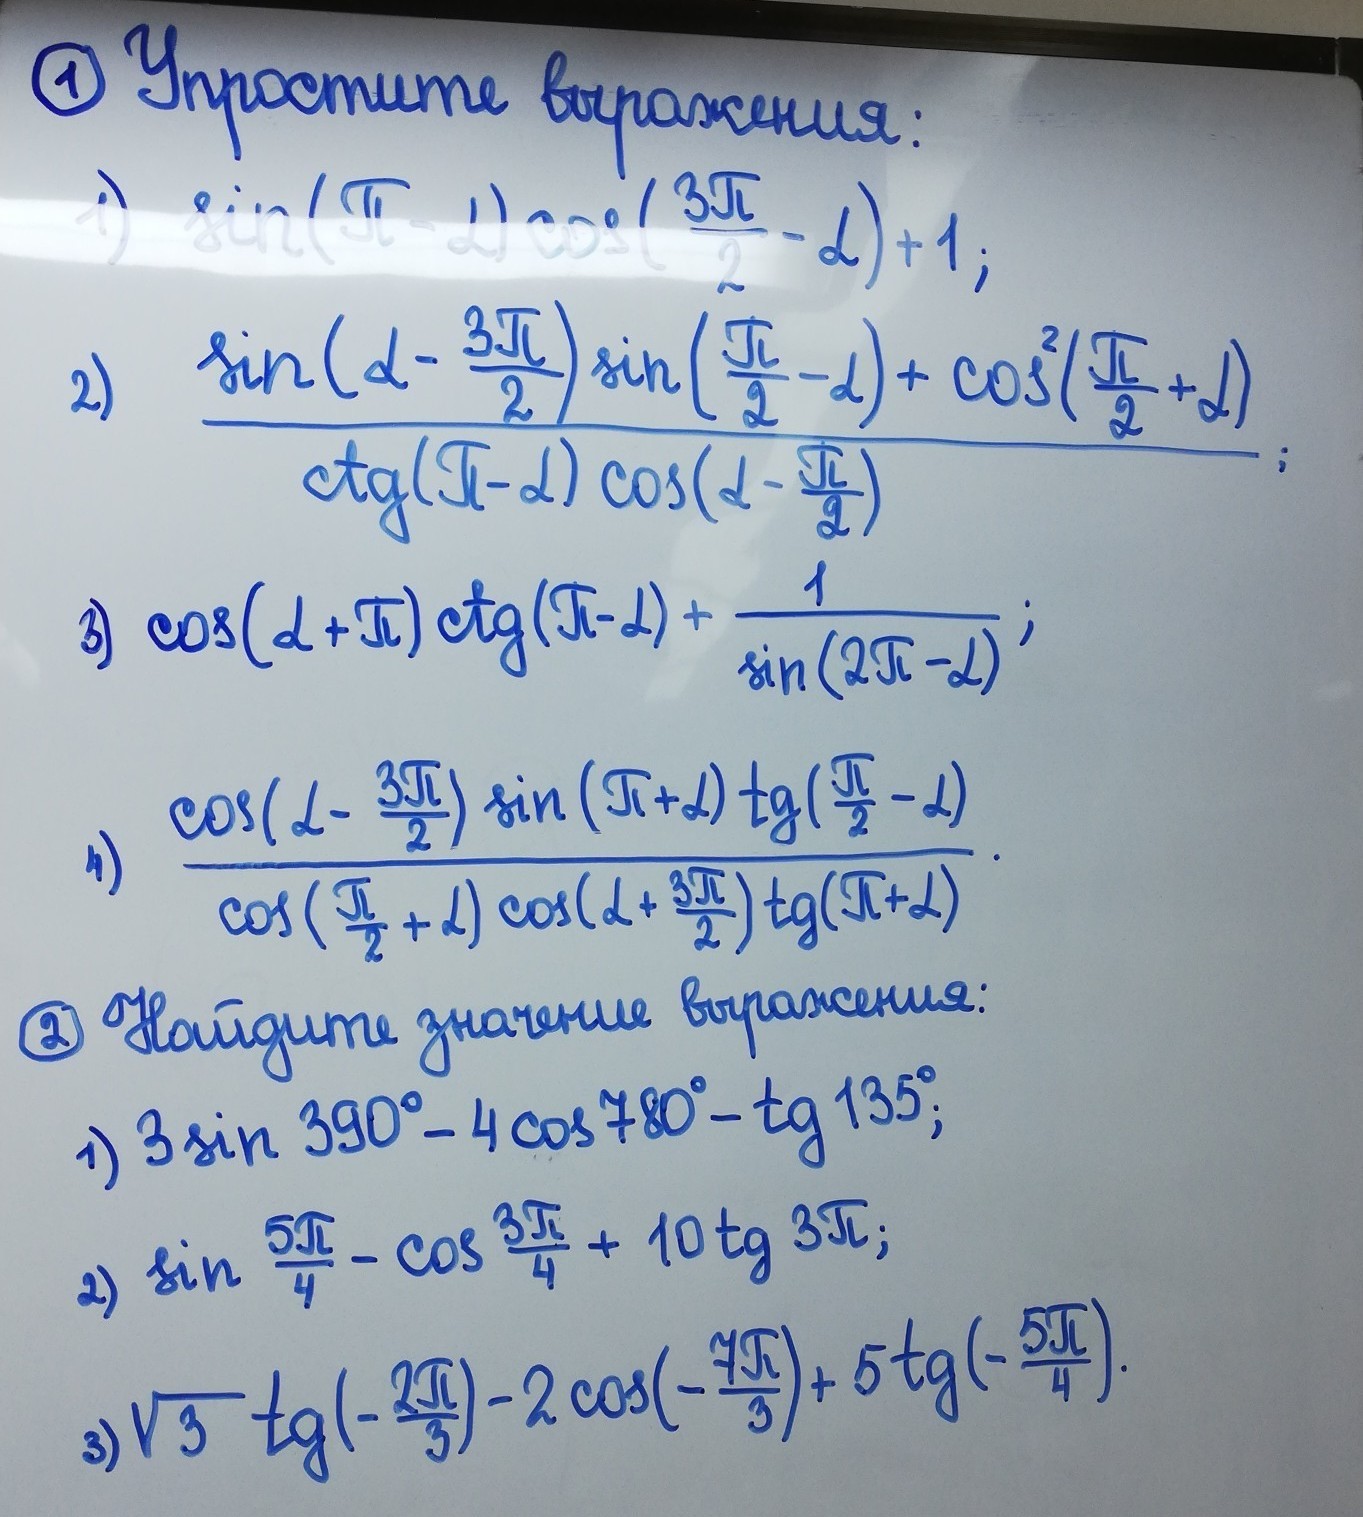 ① Упростите выражения:
1) sin(π-α) cos(3π/2 - α) + 1;
2) (sin(α - 3π/2) sin(π/2 - α) + cos²(π/2 + α)) / (ctg(π-α) cos(α - π/2));
3) cos(α+π) ctg(π-α) + 1/sin(2π-α);
4) (cos(α - 3π/2) sin(π+α) tg(π/2 - α)) / (cos(π/2 + α) cos(α + 3π/2) tg(π+α)).
② Найдите значение выражения:
1) 3 sin 390° - 4 cos 780° - tg 135°;
2) sin 5π/4 - cos 3π/4 + 10 tg 3π;
3) √3 tg(-2π/3) - 2 cos(-7π/3) + 5 tg(-5π/4).